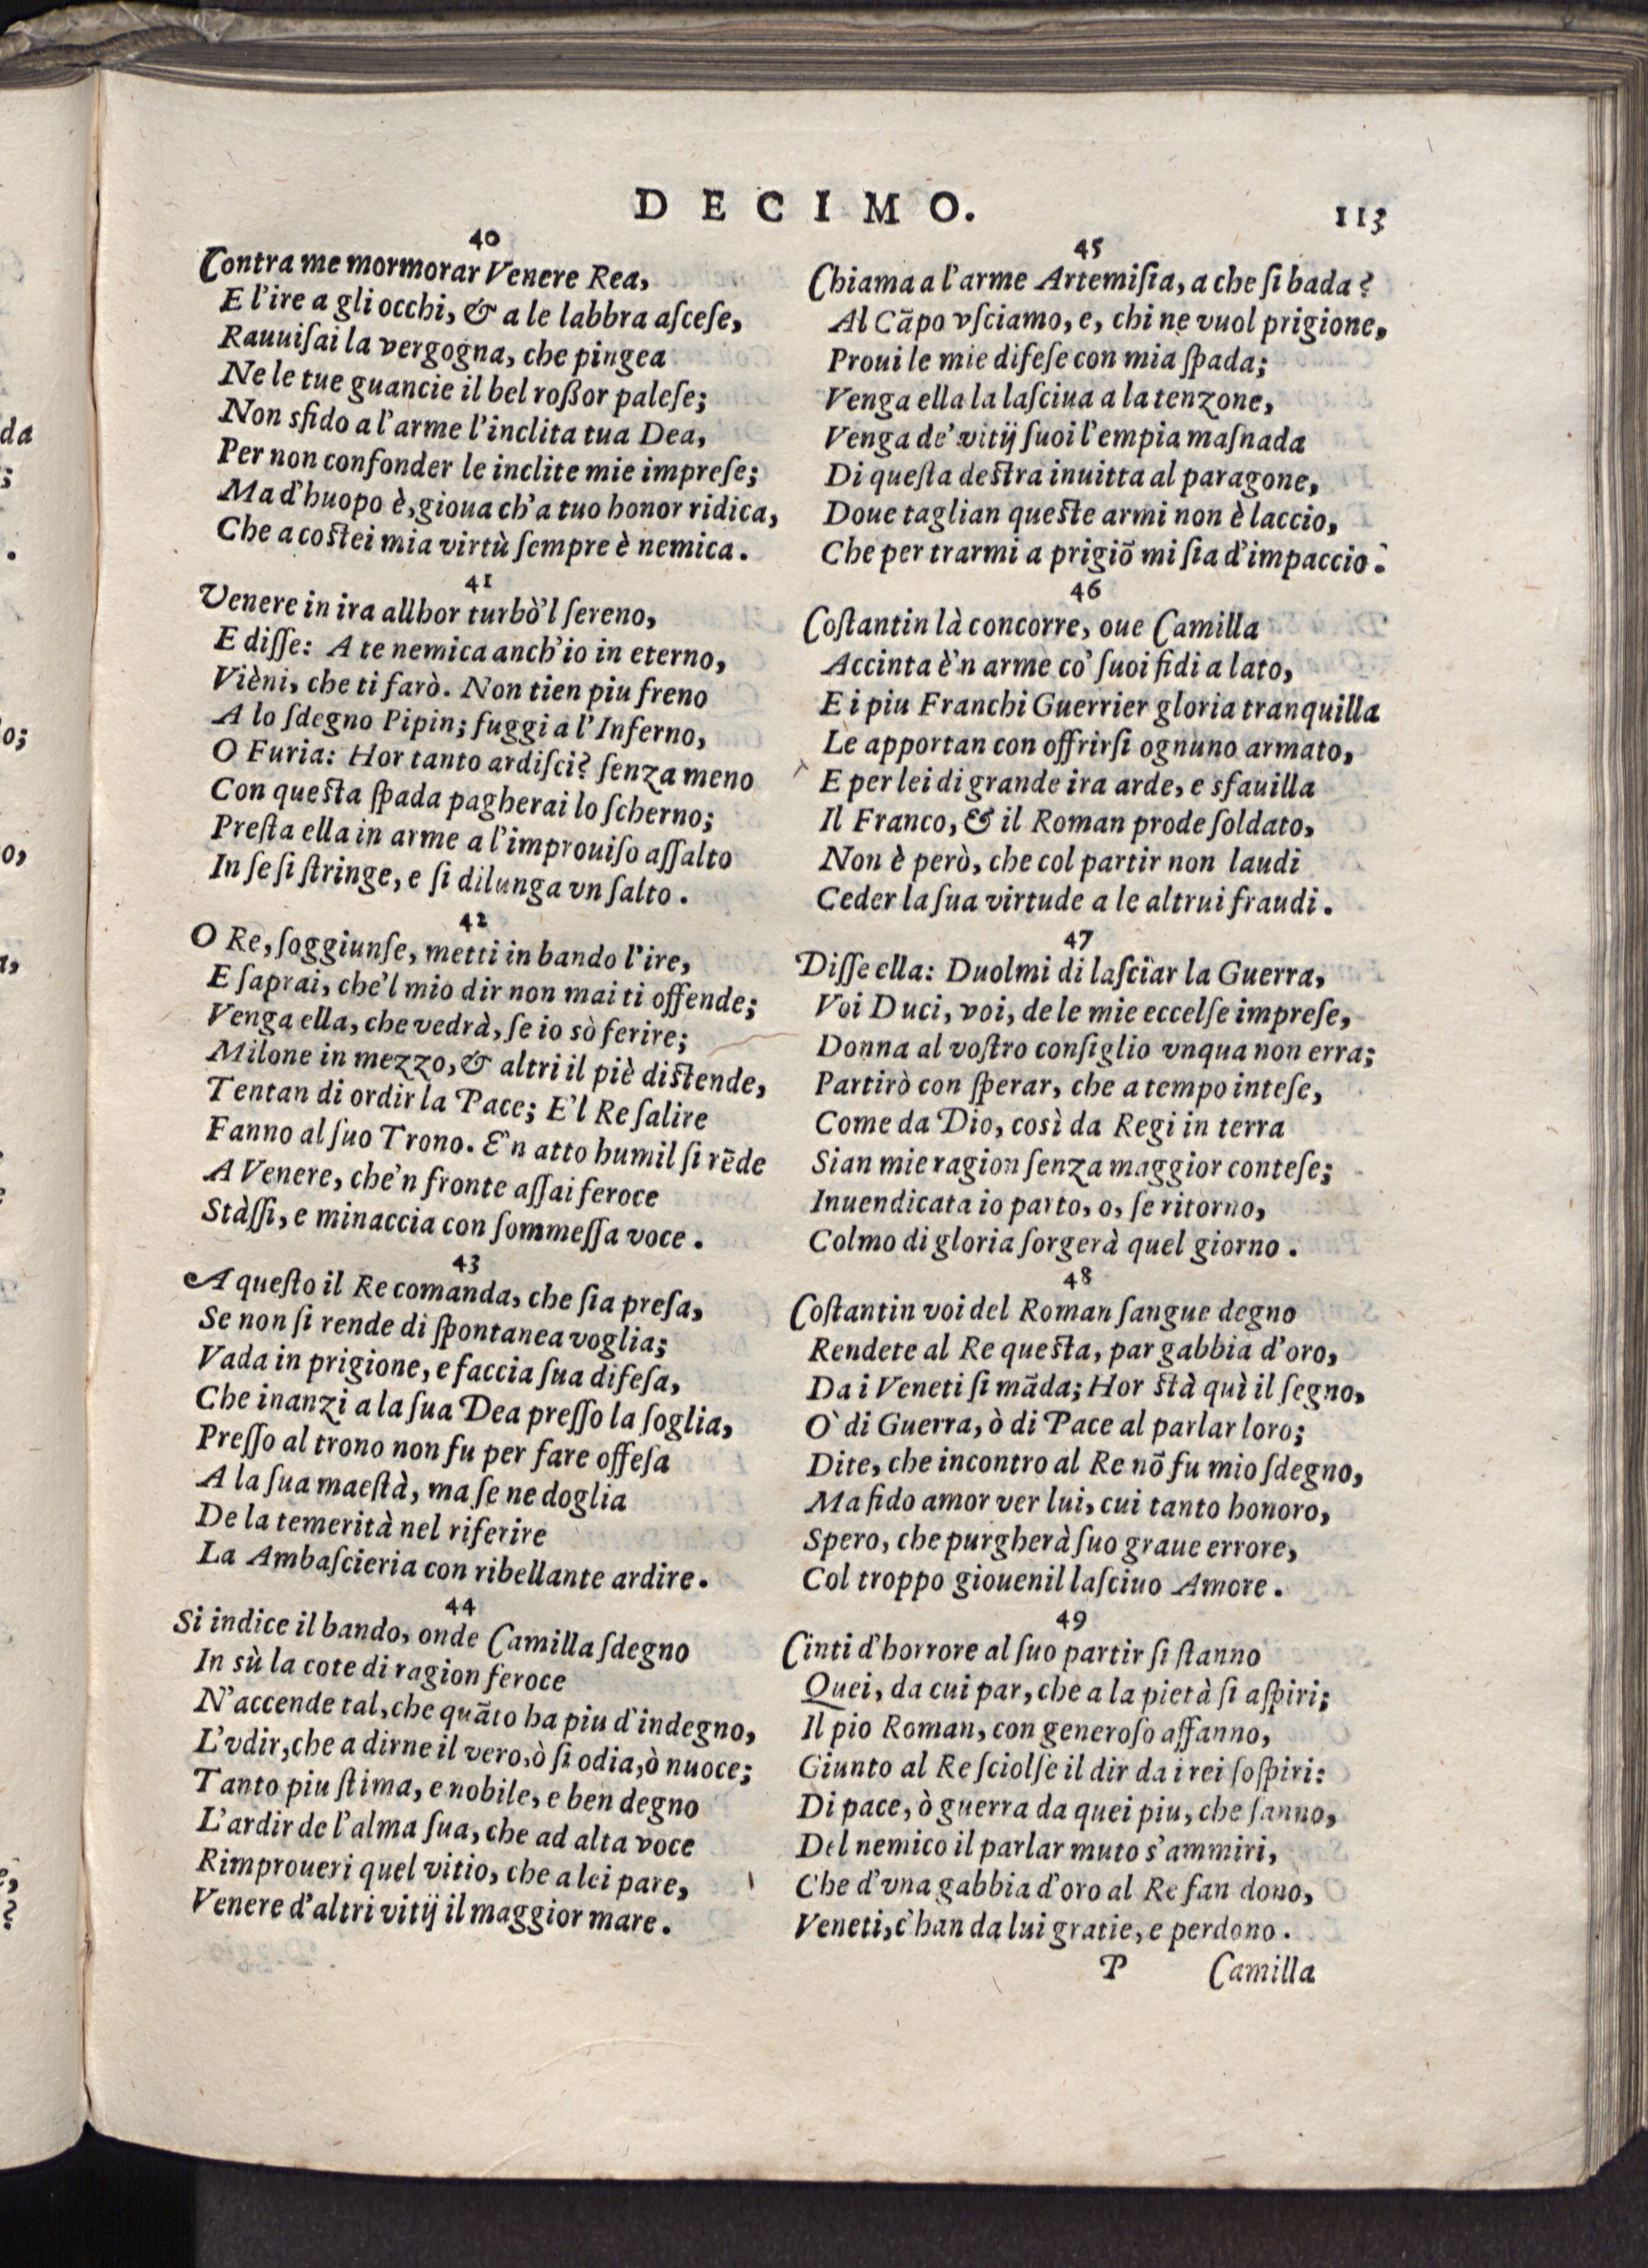 DECIMO.
113
40
Contra me mormorar Venere Rea,
E l'ire a gli occhi, & a le labbra aſceſe,
Rauuiſai la vergogna, che pingea
Ne le tue guancie il bel roßor paleſe;
Non sfido a l'arme l'inclita tua Dea,
Per non confonder le inclite mie impreſe;
Ma d'huopo è, gioua ch'a tuo honor ridica,
Che a coſtei mia virtù ſempre è nemica.
41
Venere in ira allhor turbò'l ſereno,
E diſſe: A te nemica anch'io in eterno,
Vièni, che ti farò. Non tien piu freno
A lo ſdegno Pipin; fuggi a l'Inferno,
O Furia: Hor tanto ardiſci? ſenza meno
Con queſta ſpada pagherai lo ſcherno;
Preſta ella in arme a l'improuiſo aſſalto
In ſe ſi ſtringe, e ſi dilunga vn ſalto.
42
O Re, ſoggiunſe, metti in bando l'ire,
E ſaprai, che'l mio dir non mai ti offende;
Venga ella, che vedrà, ſe io sò ferire;
Milone in mezzo, & altri il piè diſtende,
Tentan di ordir la Pace; E'l Re ſalire
Fanno al ſuo Trono. E'n atto humil ſi rẽde
A Venere, che'n fronte aſſai feroce
Stàſſi, e minaccia con ſommeſſa voce.
43
A queſto il Re comanda, che ſia preſa,
Se non ſi rende di ſpontanea voglia;
Vada in prigione, e faccia ſua difeſa,
Che inanzi a la ſua Dea preſſo la ſoglia,
Preſſo al trono non fu per fare offeſa
A la ſua maeſtà, ma ſe ne doglia
De la temerità nel riferire
La Ambaſcieria con ribellante ardire.
44
Si indice il bando, onde Camilla ſdegno
In sù la cote di ragion feroce
N'accende tal, che quãto ha piu d'indegno,
L'vdir, che a dirne il vero, ò ſi odia, ò nuoce;
Tanto piu ſtima, e nobile, e ben degno
L'ardir de l'alma ſua, che ad alta voce
Rimproueri quel vitio, che a lei pare,
Venere d'altri vitij il maggior mare.
45
Chiama a l'arme Artemiſia, a che ſi bada?
Al Cãpo vſciamo, e, chi ne vuol prigione,
Proui le mie difeſe con mia ſpada;
Venga ella la laſciua a la tenzone,
Venga de' vitij ſuoi l'empia maſnada
Di queſta deſtra inuitta al paragone,
Doue taglian queſte armi non è laccio,
Che per trarmi a prigiõ mi ſia d'impaccio.
46
Coſtantin là concorre, oue Camilla
Accinta è'n arme co' ſuoi fidi a lato,
E i piu Franchi Guerrier gloria tranquilla
Le apportan con offrirſi ognuno armato,
E per lei di grande ira arde, e sfauilla
Il Franco, & il Roman prode ſoldato,
Non è però, che col partir non laudi
Ceder la ſua virtude a le altrui fraudi.
47
Diſſe ella: Duolmi di laſciar la Guerra,
Voi Duci, voi, de le mie eccelſe impreſe,
Donna al voſtro conſiglio vnqua non erra;
Partirò con ſperar, che a tempo inteſe,
Come da Dio, così da Regi in terra
Sian mie ragion ſenza maggior conteſe;
Inuendicata io parto, o, ſe ritorno,
Colmo di gloria ſorgerà quel giorno.
48
Coſtantin voi del Roman ſangue degno
Rendete al Re queſta, par gabbia d'oro,
Da i Veneti ſi mãda; Hor ſtà quì il ſegno,
O' di Guerra, ò di Pace al parlar loro;
Dite, che incontro al Re nõ fu mio ſdegno,
Ma fido amor ver lui, cui tanto honoro,
Spero, che purgherà ſuo graue errore,
Col troppo giouenil laſciuo Amore.
49
Cinti d'horrore al ſuo partir ſi ſtanno
Quei, da cui par, che a la pietà ſi aſpiri;
Il pio Roman, con generoſo affanno,
Giunto al Re ſciolſe il dir da i rei ſoſpiri:
Di pace, ò guerra da quei piu, che ſanno,
Del nemico il parlar muto s'ammiri,
Che d'vna gabbia d'oro al Re fan dono,
Veneti, c'han da lui gratie, e perdono.
P Camilla